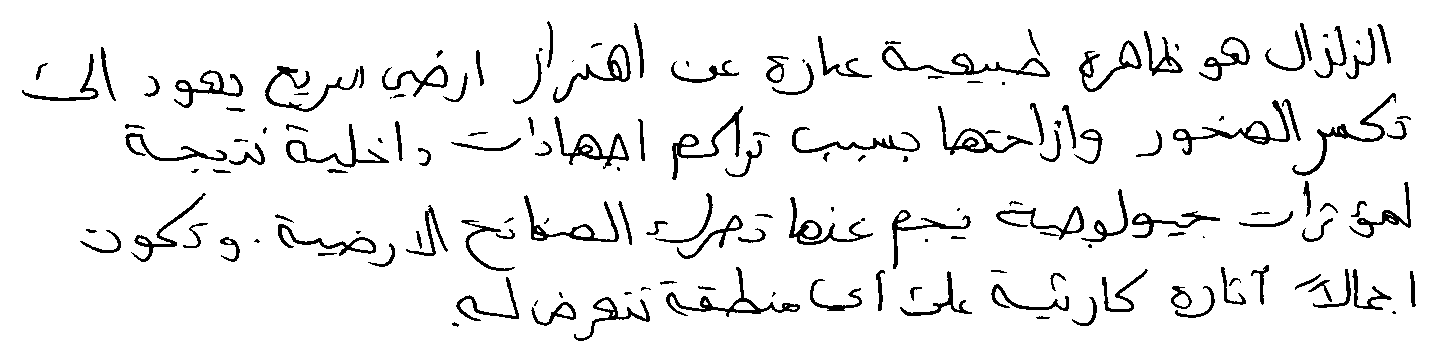 الزلزال هو ظاهرة طبيعية عبارة عن اهتزاز ارضي سريع يعود الى
تكسر الصخور وازاحتها بسبب تراكم اجهادات داخلية نتيجة
لمؤثرات جيولوجية ينجم عنها تحرك الصفائح الارضية. وتكون
اجمالاً آثاره كارثية على أي منطقة تتعرض له.